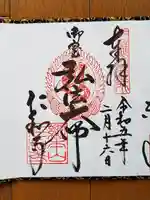 奉拝
令和五年
二月十六日
御室
弘法大師
仁和寺